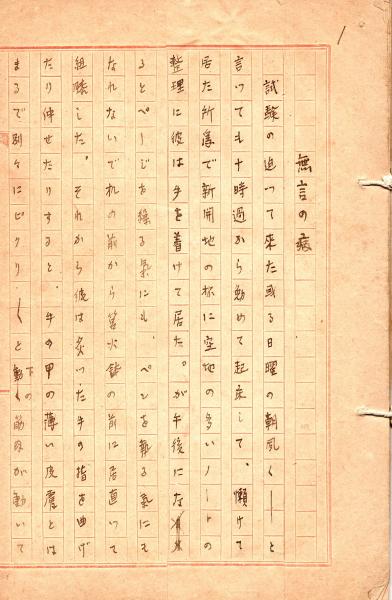 1
無言の病
試験の迫つて来た或る日曜の朝風く〳〵と
言つても十時過から勉めて起床して、懶けて
居た所為で新開地の様に空地の多いノートの
整理に彼は手を着けて居た。が午後にな
るとページを繰る氣にも、ペンを執る氣にも
なれないで机の前から箱火鉢の前に居直つて
組膝した。それから彼は炙つた手の指を曲げ
たり伸せたりすると、手の甲の薄い皮膚とは
まるで別々にピクリ〳〵と動く下の筋肉が動いて